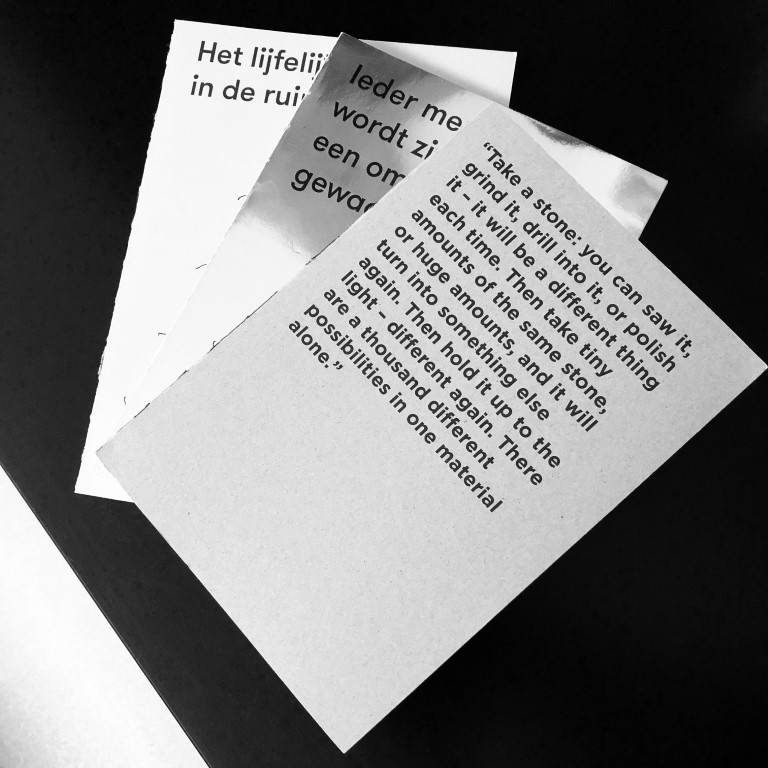 Het lijfelij
in de rui
Ieder me
wordt zi
een om
gewa
“Take a stone: you can saw it,
grind it, drill into it, or polish
it – it will be a different thing
each time. Then take tiny
amounts of the same stone,
or huge amounts, and it will
turn into something else
again. Then hold it up to the
light – different again. There
are a thousand different
possibilities in one material
alone.”